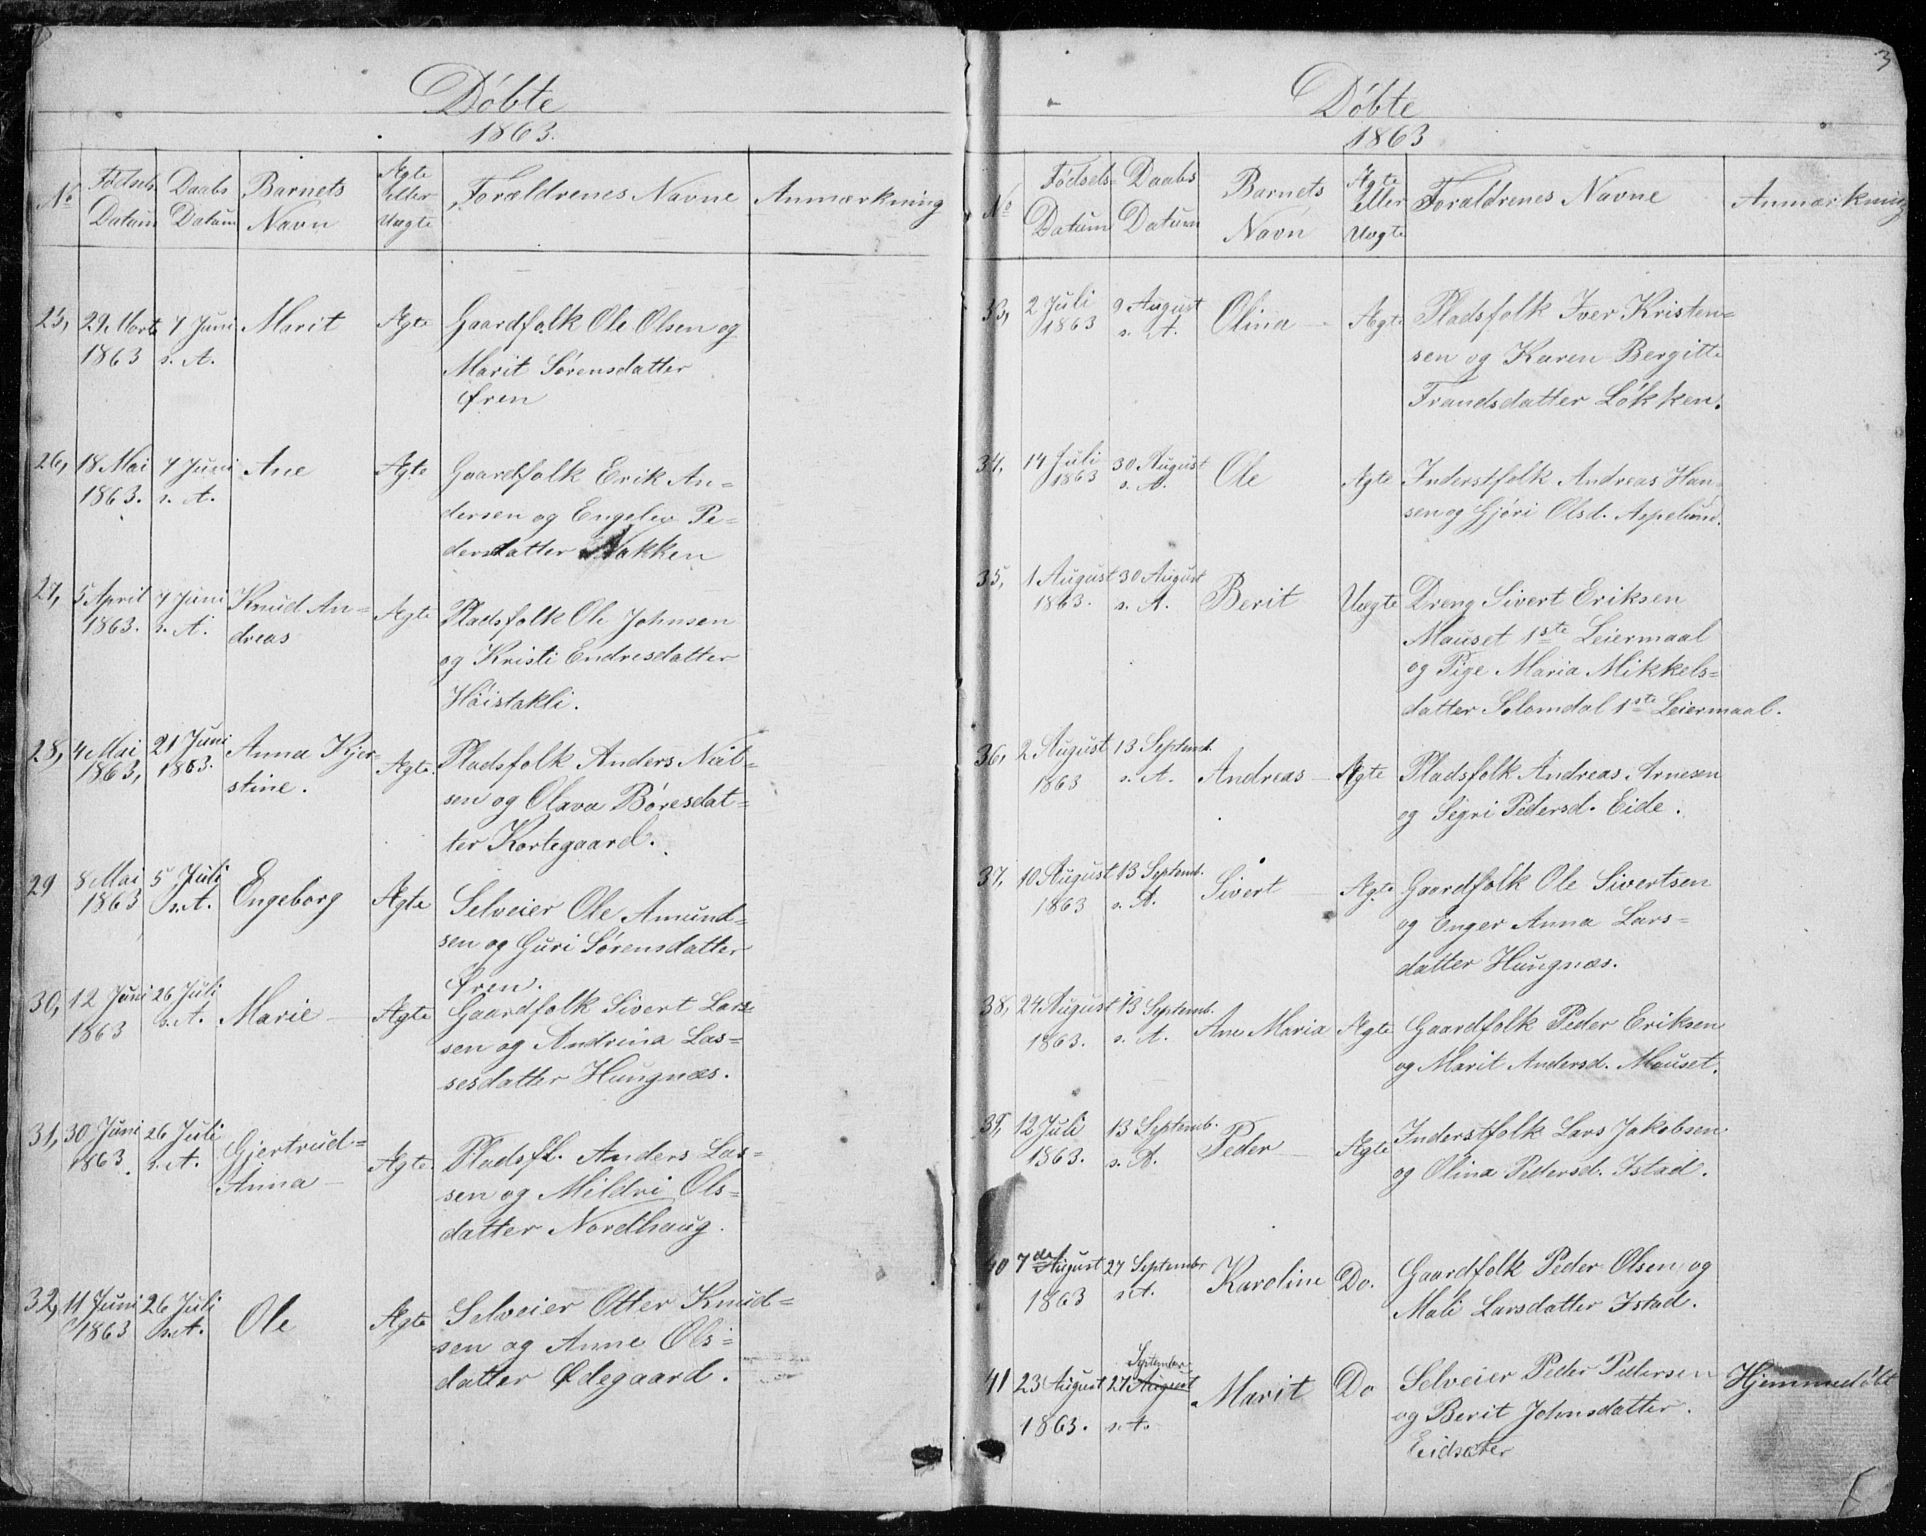 Døbte
1863.
No
Fødsels Datum
Daabs Datum
Barnets Navn
Ægte eller Uægte
Forældrenes Navne
Anmærkning
25, 29 Marts 7 Juni Marit Ægte Gaardfolk Ole Olsen og
1863 s. A. Marit Sørensdatter
Øren
26, 18 Mai 7 Juni Ane Ægte Gaardfolk Erik An=
1863. s. A. dersen og Engelev Pe=
dersdatter Nakken
27, 5 April 7 Juni Knud An= Ægte Pladsfolk Ole Johnsen
1863. s. A. dreas og Kristi Endresdatter
Høistakli.
28, 4 Mai 21 Juni Anna Kjer Ægte. Pladsfolk Anders Niel=
1863, 1863. stine. sen og Olava Børesdat=
ter Kortegaard.
29 8 Mai 5 Juli Engeborg Ægte Selveier Ole Amund=
1863 s. A. sen og Guri Sørensdatter
Øren.
30, 12 Juni 26 Juli Marie Ægte Gaardfolk Sivert Lars=
1863 s. A. sen og Andrina Las=
sesdatter Hungnæs.
31, 30 Juni 26 Juli Gjertrud= Ægte. Pladsfl. Anders Las=
1863. s. A. Anna sen og Mildri Ols=
datter Nordhaug.
32, 11 Juni 26 Juli Ole Ægte Selveier Otter Knud=
1863 s. A. sen og Anne Ols=
datter Ødegaard.
3
Døbte
1863
No
Fødsels= Datum
Daabs Datum
Barnets Navn
Ægte eller Uægte
Forældrenes Navne
Anmærkning
33, 2 Juli 9 August Olina Ægte Pladsfolk Iver Kristen=
1863 s. A. sen og Karen Bergitte
Frandsdatter Løkken.
34, 14 Juli 30 August Ole Ægte Inderstfolk Andreas Han=
1863 s. A. sen og Gjøri Olsd. Aspelund.
35, 1 August 30 August Berit Uægte Dreng Sivert Eriksen
1863. s. A. Mauset 1ste Leiermaal
og Pige Maria Mikkels=
datter Solemdal 1ste Leiermaal.
36, 2 August 13 Septemb. Andreas Ægte Pladsfolk Andreas Arnesen
1863 s. A. og Segri Pedersd. Eide.
37, 10 August 13 Septemb. Sivert Ægte Gaardfolk Ole Sivertsen
1863 s. A. og Enger Anna Lars=
datter Hungnæs.
38, 24 August 13 Septemb. Ane Maria Ægte Gaardfolk Peder Eriksen
1863. s. A. og Marit Andersd. Mauset.
39, 12 Juli 13 Septemb. Peder Ægte Inderstfolk Lars Jakobsen
1863. s. A. og Olina Pedersd. Istad.
40 7de August 27 Septembr Karoline Do. Gaardfolk Peder Olsen og
1863 s. A. Mali Larsdatter Istad.
September
41 23 August 27 August Marit Do Selveier Peder Pedersen Hjemmedøbt
1863. s. A. og Berit Johnsdatter.
Eidsæter